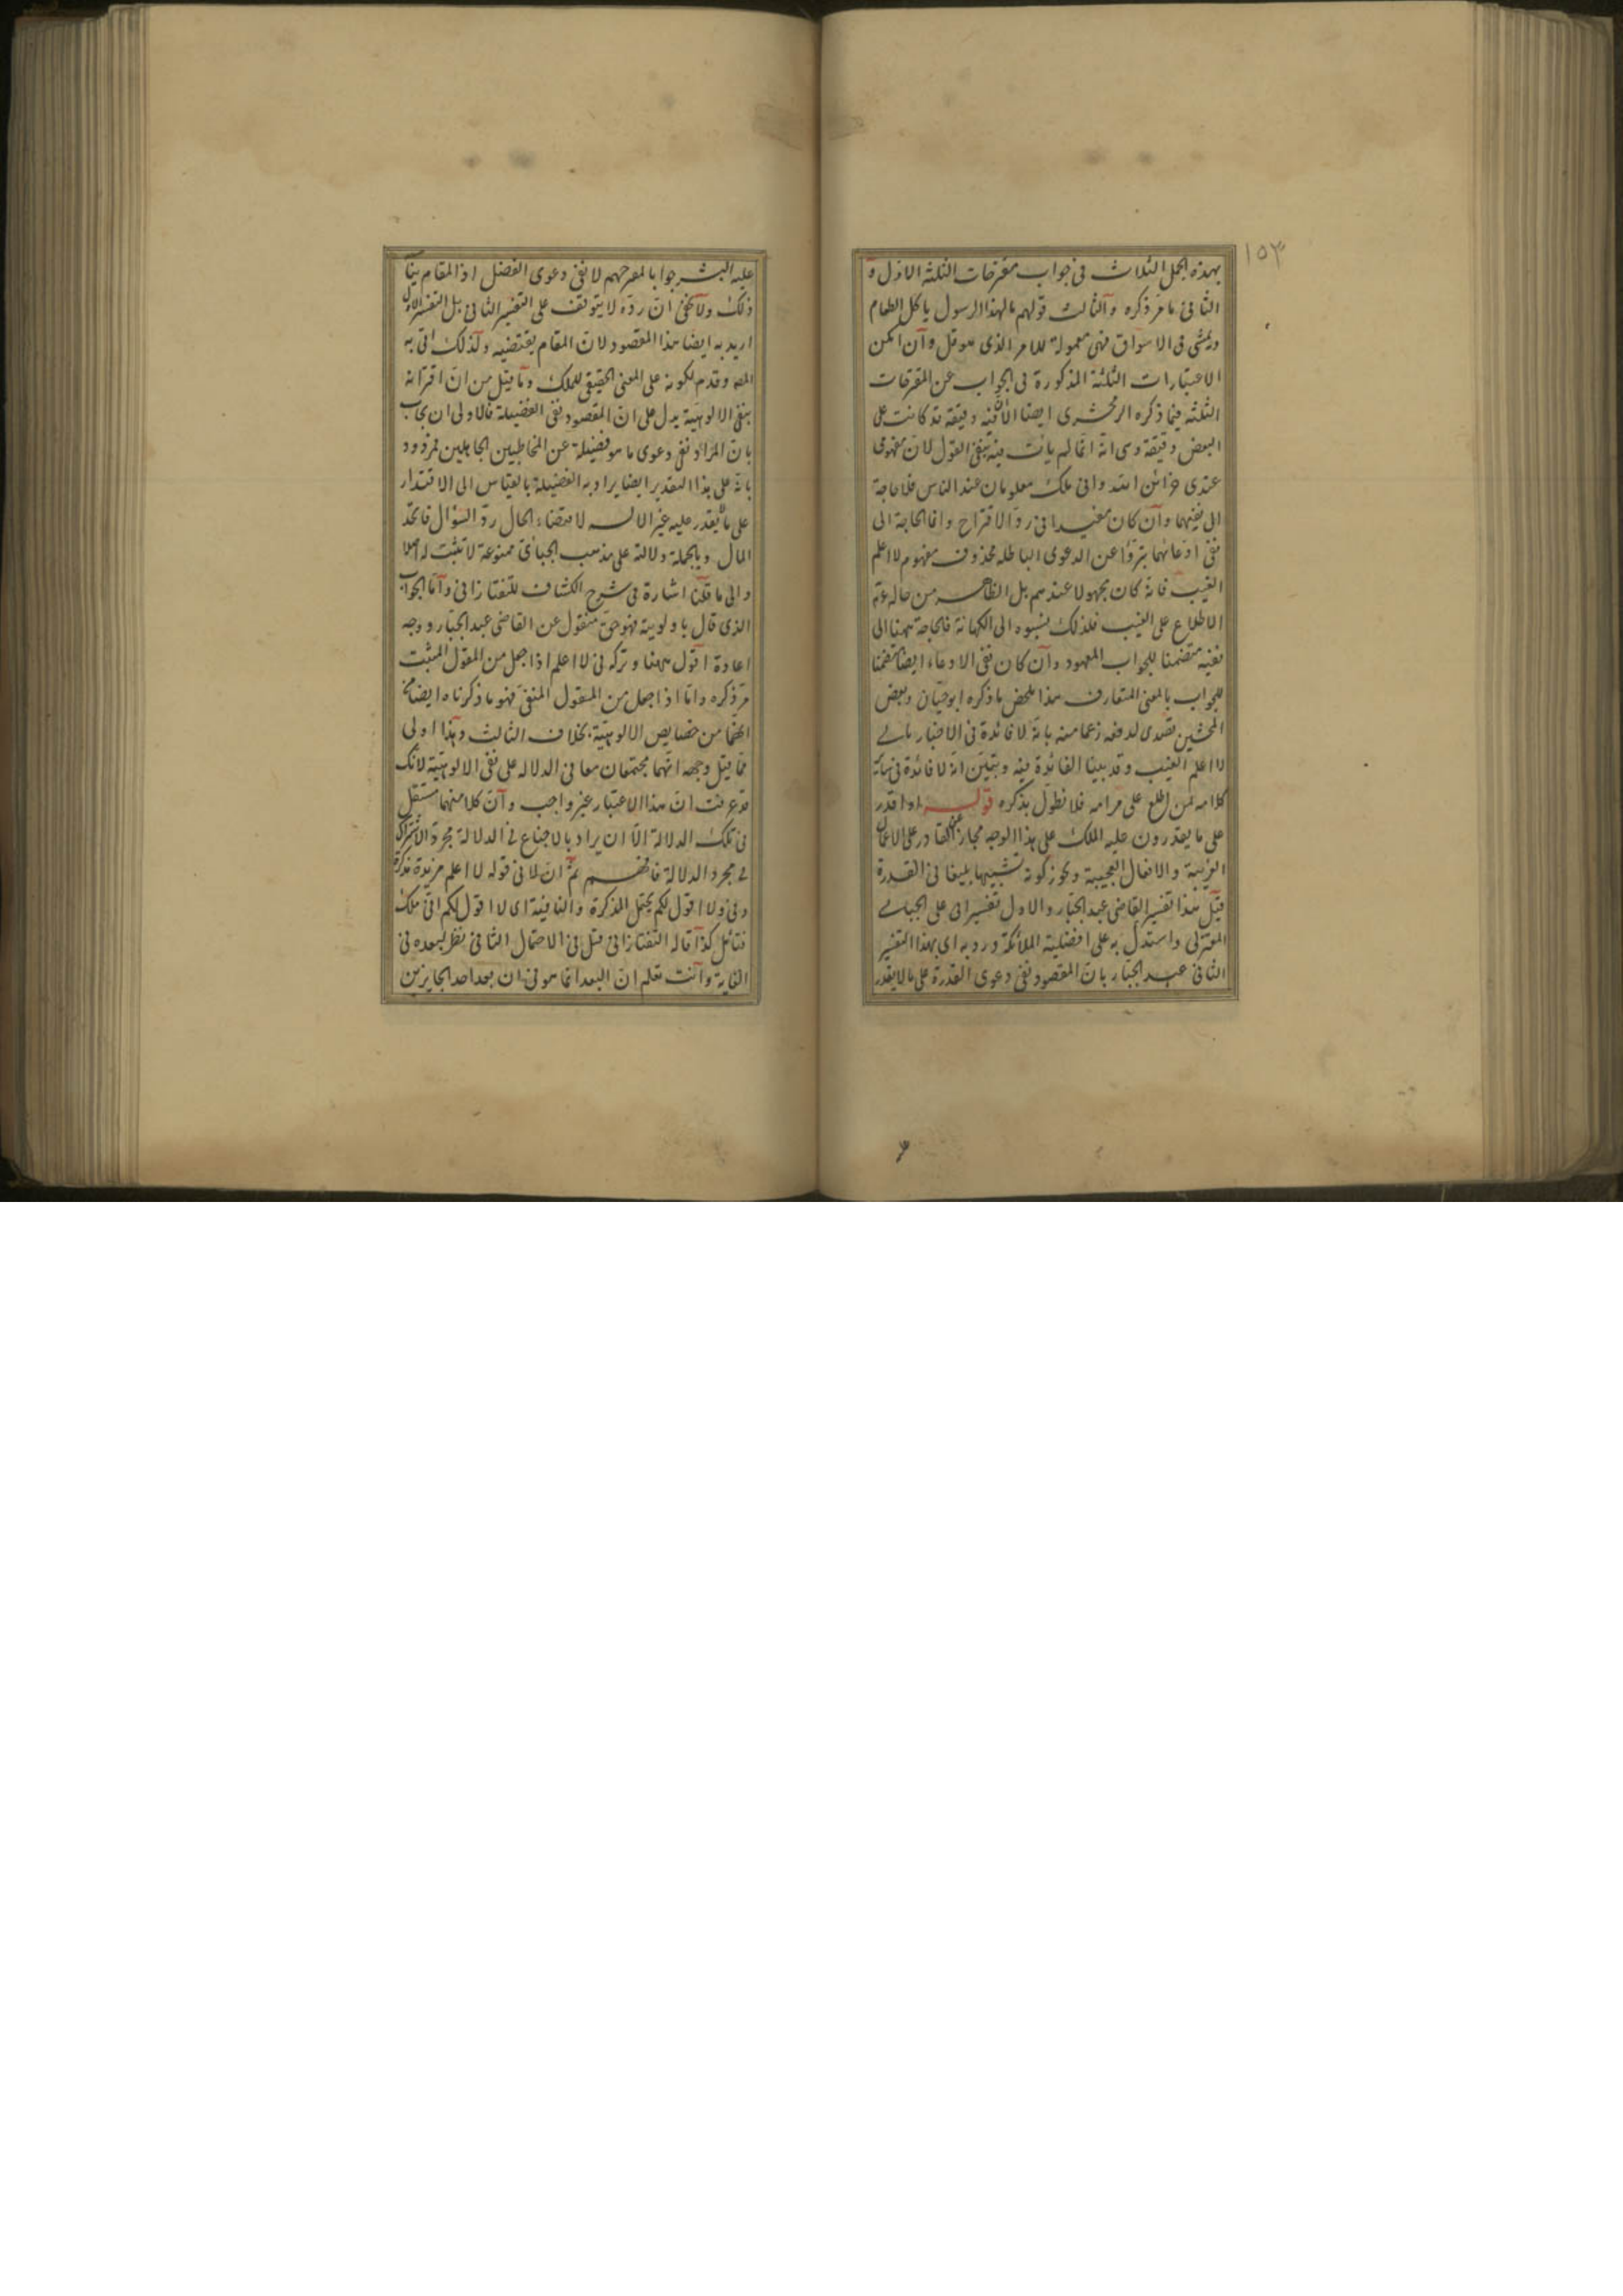 ١٥٣
بهذه الجمل الثلاث فى جواب مقترحات الثلثة الاول و
الثانى ما مر ذكره والثالث قولهم مالهذا الرسول ياكل الطعام
ويمشى فى الاسواق فهى معمولة للامر الذى هو قل وان امكن
الاعتبارات الثلثة المذكورة فى الجواب عن المقترحات
الثلثه فيما ذكره الزمخشرى ايضا الا فيه دقيقة قد كانت على
البعض دقيقة وهى انه انما لم يأت فيه بنفى القول لان مفهومى
عندى خزائن الله وانى ملك معلومان عند الناس فلا حاجة
الى نفيهما وان كان مفيدا فى رد الاقتراح وانما الحاجة الى
نفى ادعائهما تبرؤا عن الدعوى الباطله بخلاف مفهوم لا اعلم
الغيب فانه كان مجهولا عندهم بل الظاهر من حاله عدم
الاطلاع على الغيب فلذلك ينسبوه الى الكهانة فالحاجة ههنا الى
نفيه متضمنا للجواب المعهود وان كان نفى الادعاء ايضا متضمنا
للجواب بالمعنى المتعارف هذا ملخص ما ذكره ابو حيان وبعض
المحشين تصدى لدفعه زعما منه بانه لا فائدة فى الاخبار بانى
لا اعلم الغيب وقد بينا الفائدة فيه وبتبين انه لا فائدة فى
كلامه لمن اطلع على مرامه فلا نطول بذكره قوله او اقدر
على ما يقدرون عليه الملك على هذا الوجه مجاز عن القادر على الاعمال
الغريبة والافعال العجيبة ويجوز كونه تشبيها بليغا فى القدرة
قيل هذا تفسير القاضى عبد الجبار والاول تفسير ابى على الجبائى
المعتزلى واستدل به على افضلية الملائكة ورد به اى بهذا التفسير
الثانى عبد الجبار بان المقصود نفى دعوى القدرة على ما لا يقدر
عليه البشر جوابا لمقترحهم لا نفى دعوى الفضل اذ المقام ينافى
ذلك ولا يخفى ان رده لا يتوقف على التفسير الثانى بل التفسير الاول
اريد به ايضا هذا المقصود لان المقام يقتضيه ولذلك اتى به
المصـ وقدم لكونه على المعنى الحقيقى للملك وما قيل من ان اقترانه
بنفى الالوهية يدل على ان المقصود نفى الفضيلة فالاولى ان يجاب
بان المراد نفى دعوى ما هو فضيلة عن المخاطبين الجاهلين فمردود
بانه على هذا التقدير ايضا يراد به الفضيلة بالقياس الى الاقتدار
على ما لا يقدر عليه غير الاله لاقتضاء الحال رد السؤال فاتحد
المال وبالجملة دلالته على مذهب الجبائى ممنوعة لا تثبت له اصلا
والى ما قلنا اشارة فى شرح الكشاف للتفتازانى واما الجواب
الذى قال باولويته فهو حق منقول عن القاضى عبد الجبار ووجه
اعادة اقول ههنا وتركه فى لا اعلم اذا جعل من المقول المثبت
مر ذكره واما اذا جعل من المقول المنفى فهو ما ذكرناه ايضا مع
انهما من خصايص الالوهية بخلاف الثالث وهذا اولى
مما قيل وجهه انهما مجتمعان معا فى الدلاله على نفى الالوهية لانك
قد عرفت ان هذا الاعتبار غير واجب وان كلا منهما مستقل
فى تلك الدلالة الا ان يراد بالاجتماع فى الدلالة مجرد الاشتراك
فى مجرد الدلالة فافهم ثم ان لا فى قوله لا اعلم مزيدة مذكرة
وفى ولا اقول لكم يحتمل المذكرة والنافية اى لا اقول لكم انى ملك
فتامل كذا قاله التفتازانى قيل فى الاحتمال الثانى نظر لبعده فى
الغاية وانت تعلم ان البعد انما هو فى ان بعد احد الجايزين